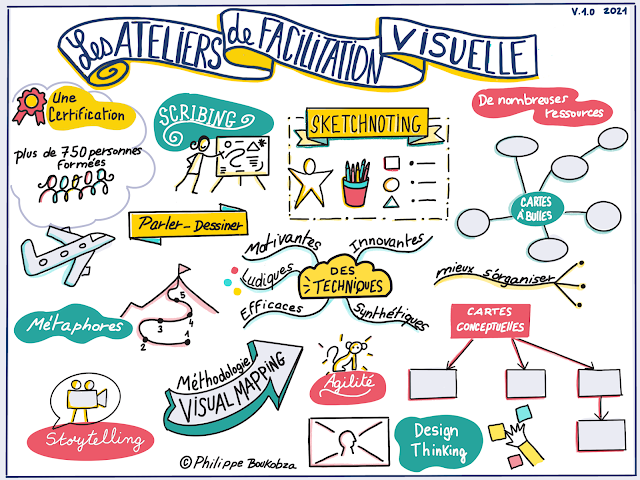 V.1.0 2021
Les ATELIERS de FACILITATION VISUELLE
Une
Certification
plus de 750 personnes
formées
SCRIBING
SKETCHNOTING
De nombreuses
ressources
CARTES
À BULLES
Parler - Dessiner
Motivantes
Innovantes
Ludiques
DES
TECHNIQUES
Efficaces
Synthétiques
mieux s'organiser
Métaphores
5
3
4
2
1
CARTES
CONCEPTUELLES
Méthodologie
VISUAL MAPPING
Agilité
Storytelling
Design
Thinking
© Philippe Boukobza